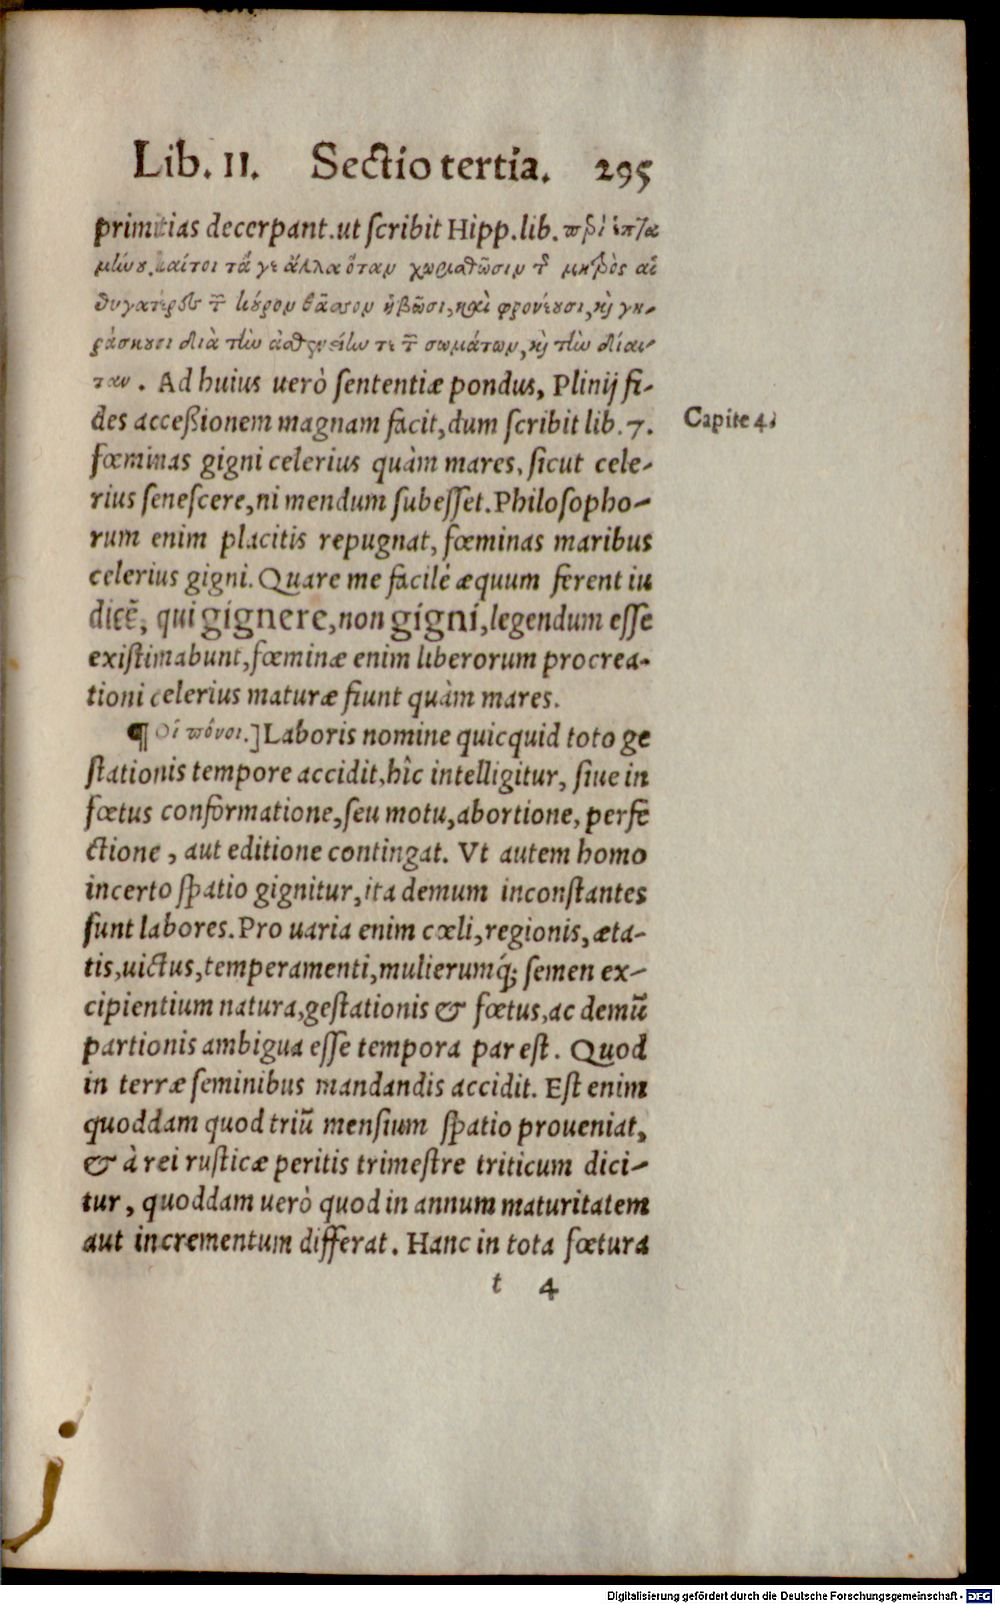 Lib. II. Sectio tertia. 295
primitias decerpant. ut scribit Hipp. lib. περὶ ἑπτα
μήνου. καίτοι τά γε ἄλλα ὅταν χωριαθῶσιν τ͂ μητρὸς αἱ
θυγατέρες τ͂ κούρων θᾶσσον ἡβῶσι, καὶ φρονέουσι, καὶ γη-
ράσκουσι διὰ τὴν ἀσθενείην τε τ͂ σωμάτων, καὶ τὴν δίαι-
ταν. Ad huius uerò sententiæ pondus, Plinij fi-
des acceßionem magnam facit, dum scribit lib. 7.
Capite 4.
fœminas gigni celerius quàm mares, sicut cele-
rius senescere, ni mendum subesset. Philosopho-
rum enim placitis repugnat, fœminas maribus
celerius gigni. Quare me facilè æquum ferent iu
dicẽ, qui gignere, non gigni, legendum esse
existimabunt, fœminæ enim liberorum procrea-
tioni celerius maturæ fiunt quàm mares.
¶ Οἱ πόνοι.] Laboris nomine quicquid toto ge
stationis tempore accidit, hîc intelligitur, siue in
fœtus conformatione, seu motu, abortione, perfe
ctione, aut editione contingat. Vt autem homo
incerto spatio gignitur, ita demum inconstantes
sunt labores. Pro uaria enim cœli, regionis, æta-
tis, uictus, temperamenti, mulierumq́; semen ex-
cipientium natura, gestationis & fœtus, ac demũ
partionis ambigua esse tempora par est. Quod
in terræ seminibus mandandis accidit. Est enim
quoddam quod triũ mensium spatio proueniat,
& à rei rusticæ peritis trimestre triticum dici-
tur, quoddam uerò quod in annum maturitatem
aut incrementum differat. Hanc in tota fœtura
t 4
Digitalisierung gefördert durch die Deutsche Forschungsgemeinschaft - DFG